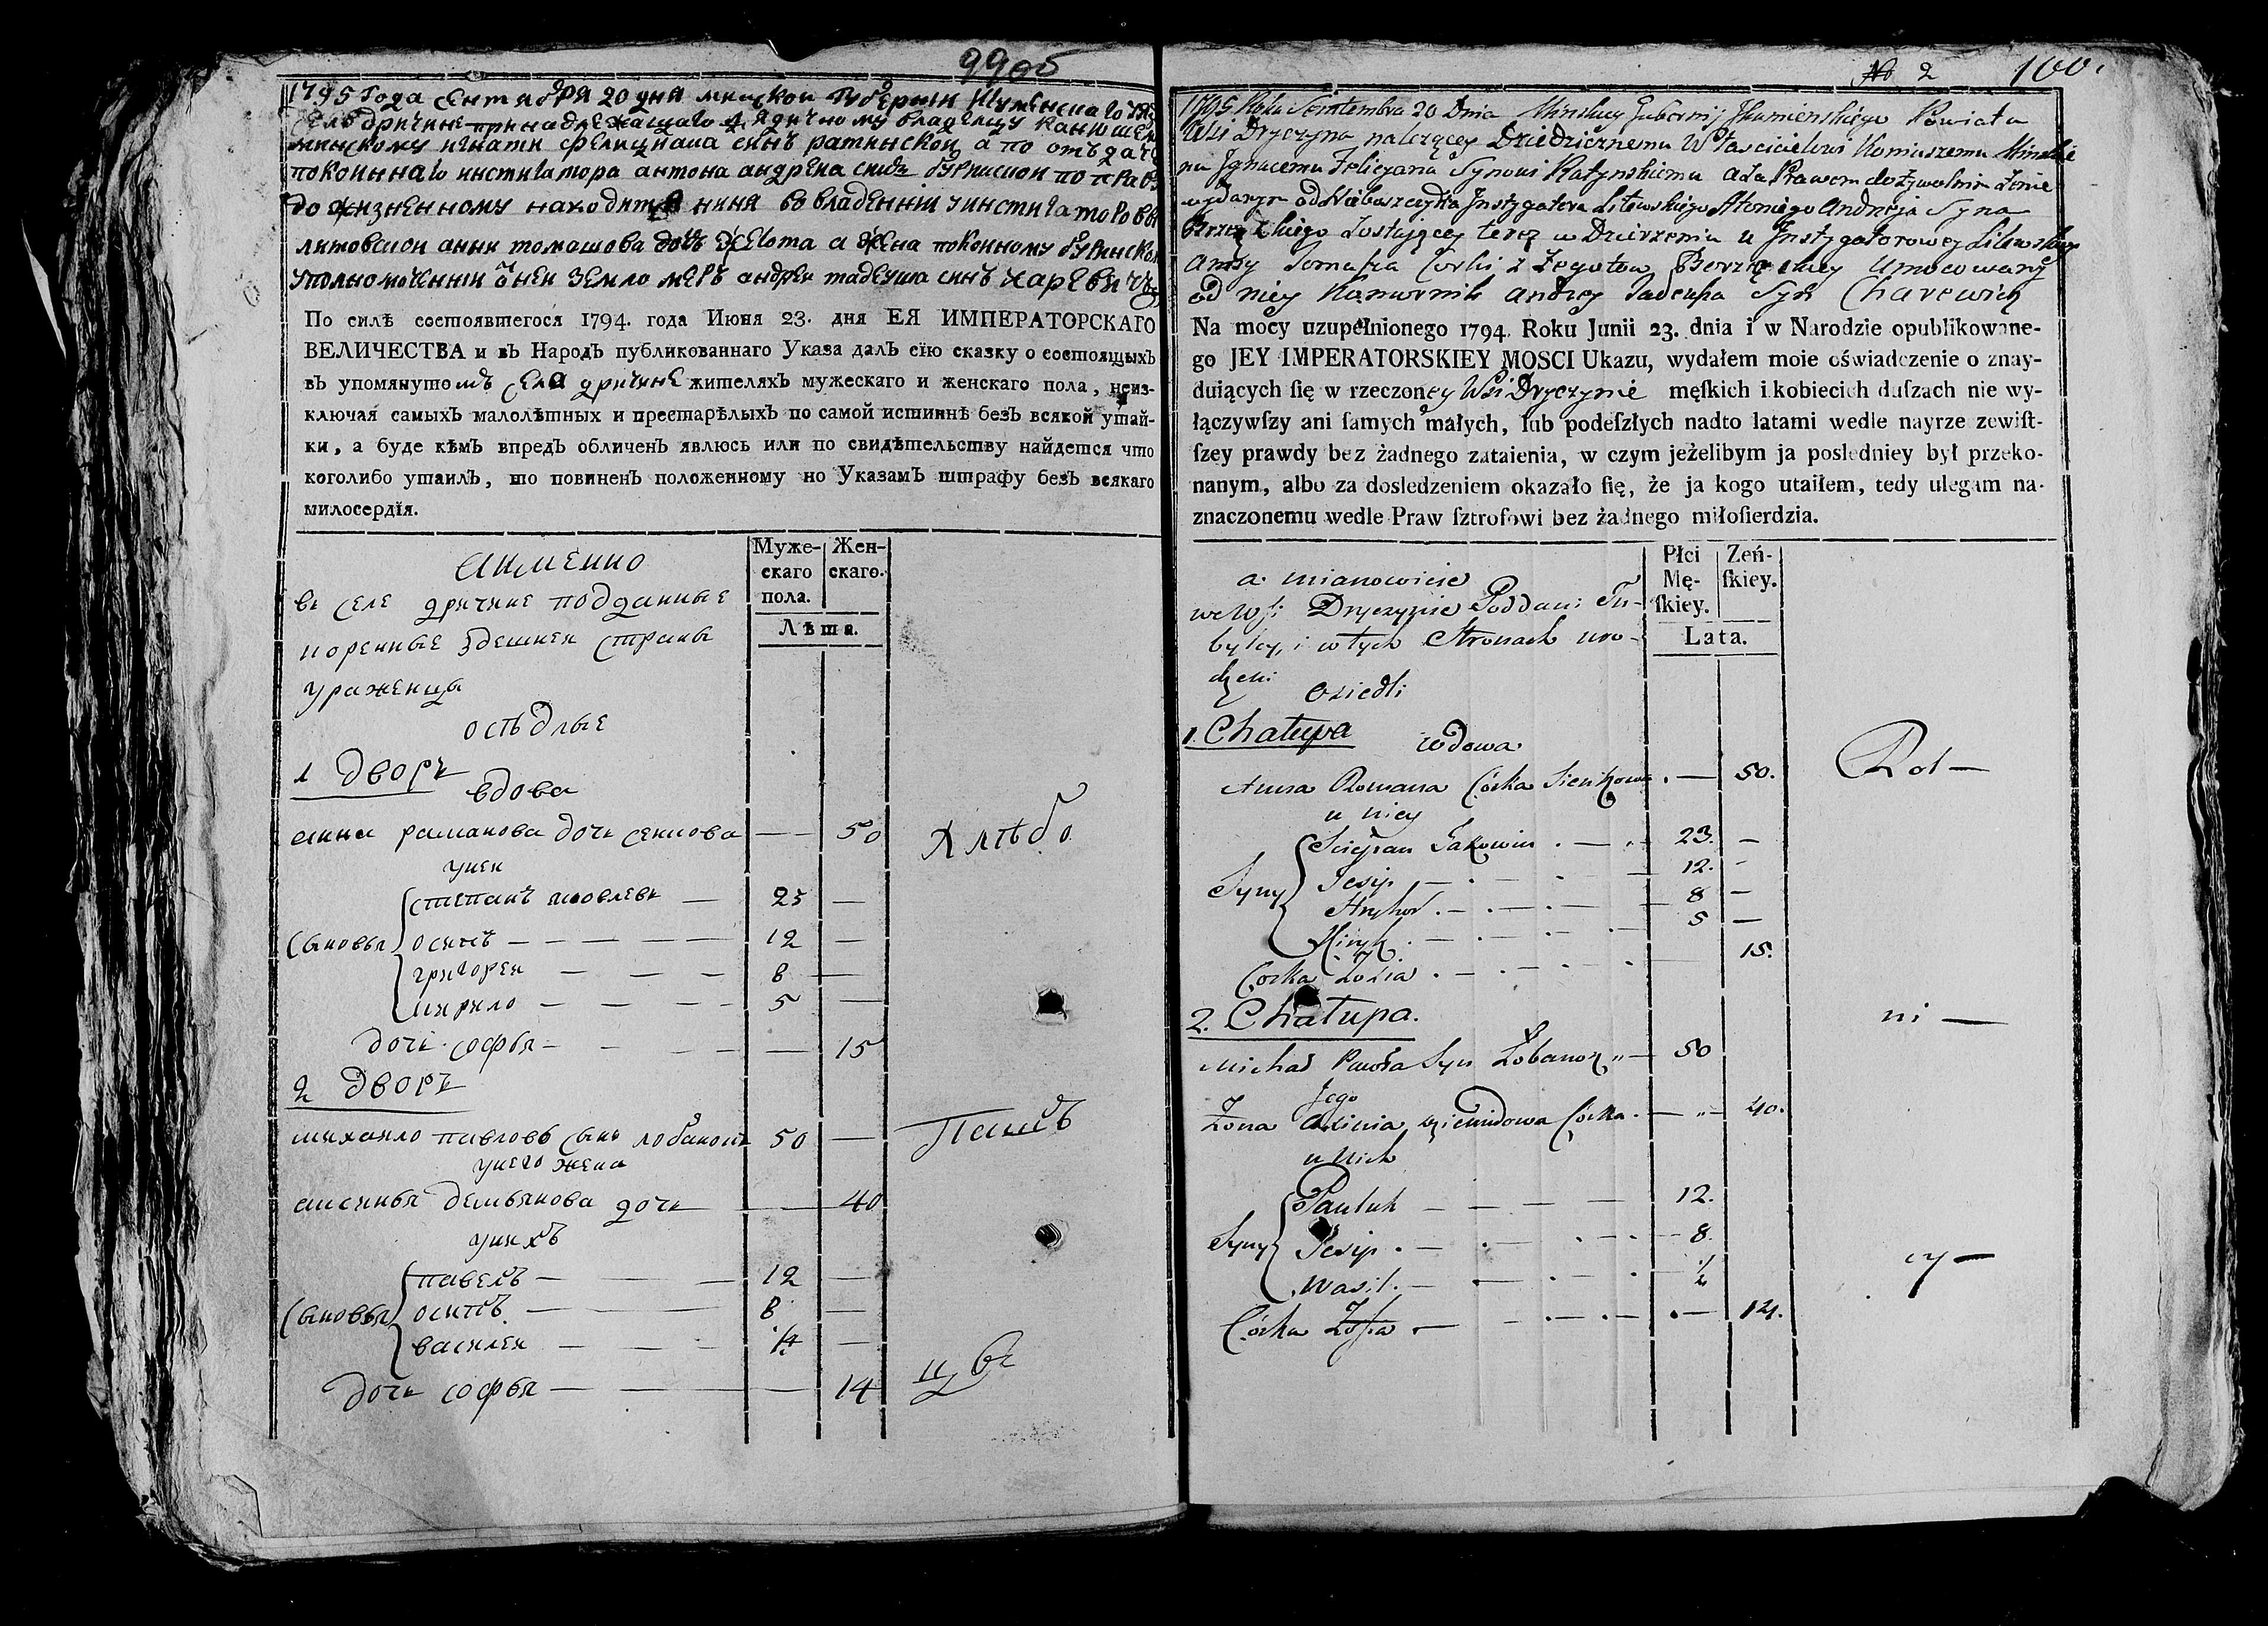 99об
1795 Года Сентября 20 дня минской Губерніи Игуменскаго
села дричине принадлежащаго дядичному владелцу
минскому игнати фелициана синъ ратинской а по отъ
покойнаго инстигатора антона андреиа по праву
до жизненному находится ниня въ владенніи у инстигаторовы
литовской анни томашова дочъ а жена покойному
уполномоченнїи от ней андреи тадеуша синъ харевичъ
По силѣ состоявшегося 1794. года Июня 23. дня ЕЯ ИМПЕРАТОРСКАГО
ВЕЛИЧЕСТВА и въ Народъ публикованнаго Указа далъ сїю сказку о состоящыхъ
въ упомянутомъ села дричине жителяхъ мужескаго и женскаго пола, неиз-
ключая самыхъ малолѣтныхъ и престарѣлыхъ по самой истиннѣ безъ всякой утай-
ки, а буде кѣмъ впредъ обличенъ явлюсь или по свидѣтельству найдется что
коголибо утаилъ, то повиненъ положенному по Указамъ штрафу безъ всякаго
милосердїя.
аименно
Муже-
скаго
пола.
Жен-
скаго.
Лѣта.
въ селе дричине подданные
коренные здешней страны
ураженцы
осѣдлые
1 дворъ
вдова
анна раманова дочь сенкова — 50
Хлѣбо
у ней
степанъ яковлевъ — 23 —
сыновья осипъ — 12 —
григорей — 8 —
кирило — 5 —
дочь софья — — 15
2 дворъ
михайло павловъ сынъ лобанокъ 50 —
Пашъ
у него жена
аксинья демьянова дочь — 40
у нихъ
павелъ — 12 —
сыновья осипъ — 8 —
василей — —
дочь софья — — 14
цы
№ 2 100.
1795 Roku Septembra 20 Dnia Minskiey Gubernij Ihumienskiego Powiatu
Wsi Dryczyna nalezącey Dziedzicznemu Włascicielowi Koniuszemu
Ignacemu Felicyana Synowi Ratynskiemu a za Prawem dożywotnim Żonie
od Nieboszczyka Instygatora Litewskiego Antoniego Andrzeja Syna
zostaiącey teraz w Dzierzeniu u Instygatorowey Litewskiey
Anny Tomasza Corki z Umocowany
od niey Komornik Andrzey Tadeusza Syn Charewicz
Na mocy uzupełnionego 1794. Roku Junii 23. dnia i w Narodzie opublikowane-
go JEY IMPERATORSKIEY MOSCI Ukazu, wydałem moie oświadczenie o znay-
duiących ſię w rzeczoney Wsi Dryczynie męſkich i kobiecich duſzach nie wy-
łączywſzy ani ſamych małych, lub podeſzłych nadto latami wedle nayrze zewiſt-
ſzey prawdy bez żadnego zataienia, w czym jeżelibym ja posledniey był przeko-
nanym, albo za dosledzeniem okazało ſię, że ja kogo utaiłem, tedy ulegam na-
znaczonemu wedle Praw ſztrofowi bez żadnego miłoſierdzia.
a mianowicie
Płci
Mę-
ſkiey.
Zeń-
ſkiey.
Lata.
we Wsi Dryczynie Poddani Tu-
bylcy, i w tych Stronach uro-
dzeni
Osiedli
1. Chałupa
wdowa
Anna Romana Córka Sienkowa . — 50.
Rol —
u niey
Sciepan Jakowiu . — 23. —
Syny Jesip — 12. —
Hryhor . — 8 —
Kiryk . — 5 —
Corka Zosia . — 15.
2. Chałupa.
ni —
Michał Pawła Syn Łobanok — 50
Jego
Żona Axinia Córka . — 40.
u nich
Pauluk — 12.
Syny Jesip . — 8.
Wasil . — ½
cy —
Córka Zosia . — 14.